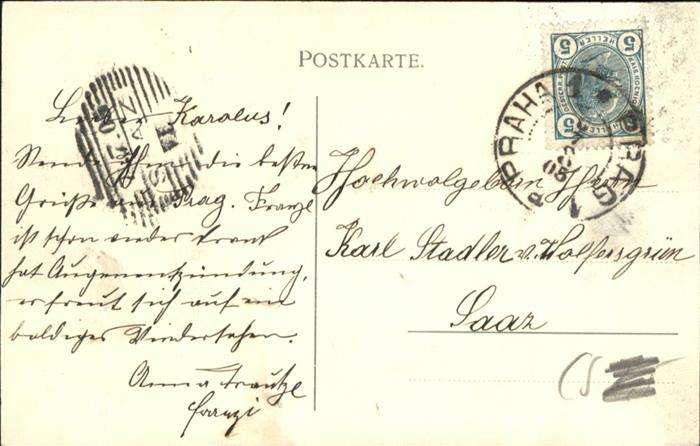 POSTKARTE.
Lieber Karolus!
Sende Ihnen die besten
Grüße aus Prag. Franzl
ist schon wieder krank
hat Augenentzündung,
erfreut sich auf ein
baldiges Wiedersehen.
Anna
franzi
Hochwolgeboren Herrn
Karl Stadler v. Wolfersgrün
Saaz
5 HELLER 5
PRAHA PRAG